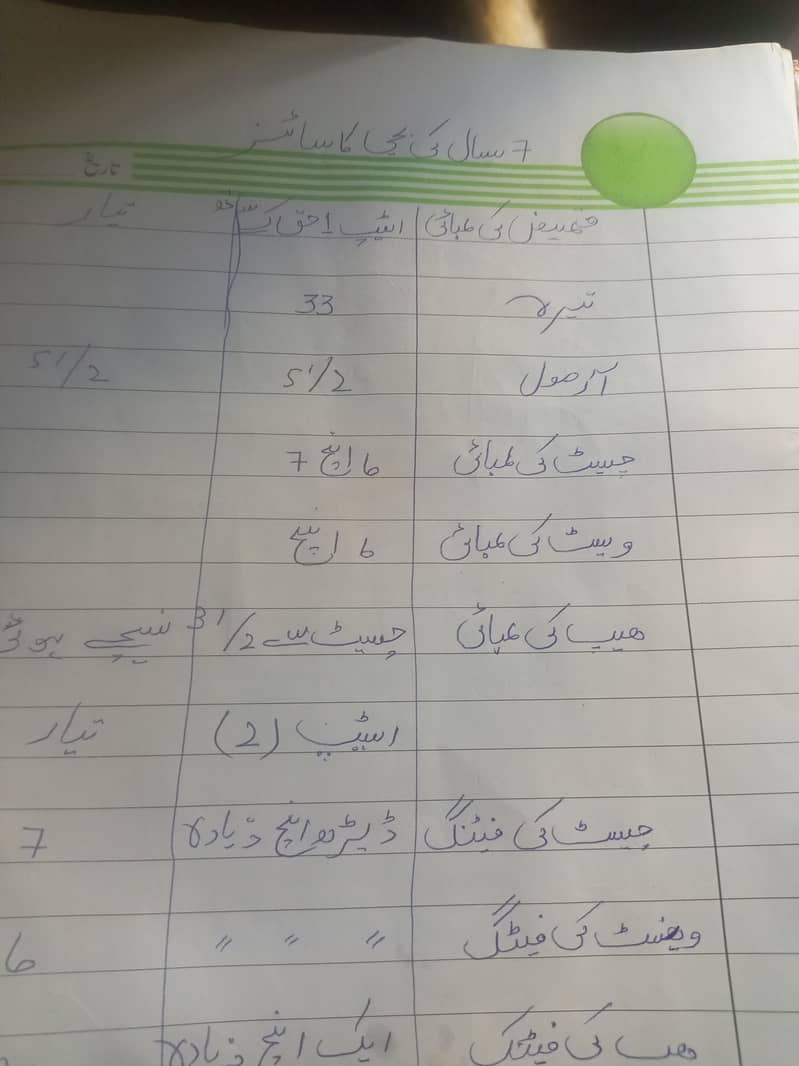 7 سال کی بچی کا سائز
تاریخ
قمیض کی لمبائی اسٹیپ حق کے ساتھ تیار
تیرہ 33
آرمول 5 1/2 5 1/2
چیسٹ کی لمبائی 6 انچ 7
ویسٹ کی لمبائی 6 انچ
ھیپ کی لمبائی چیسٹ سے 3 1/2 نیچے ہوئی
اسٹیپ (2) تیار
چیسٹ کی فیٹنگ ڈیڑھ انچ ذیادہ 7
ویسٹ کی فیٹنگ 〃 〃 〃 6
ھپ کی فیٹنگ ایک انچ ذیادہ